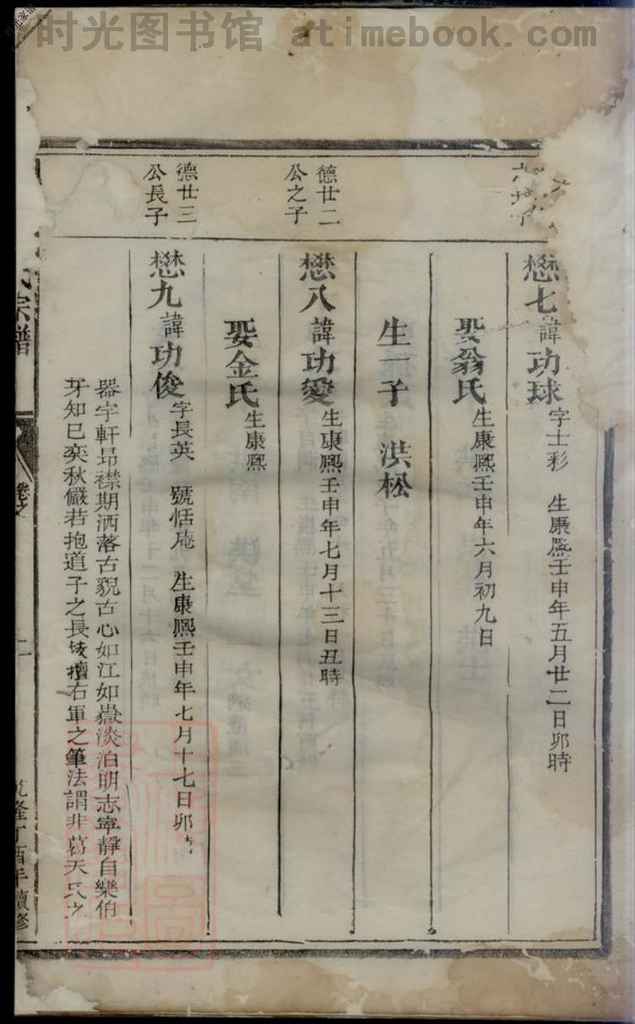 时光图书馆 atimebook.com
懋七諱功球 字士彩 生康熈壬申年五月廿二日卯時
娶翁氏 生康熈壬申年六月初九日
生一子 洪松
德廿二
公之子
懋八諱功愛 生康熈壬申年七月十三日丑時
娶金氏 生康熈
德廿三
公長子
懋九諱功俊 字長英 號恬庵 生康熈壬申年七月十七日卯
器宇軒昻襟期洒落古貌古心如江如嶽淡泊明志寧靜自樂伯
牙知巳奕秋儼若抱道子之長技擅右軍之筆法謂非葛天氏之
宗譜
卷之
隆丁酉年續修